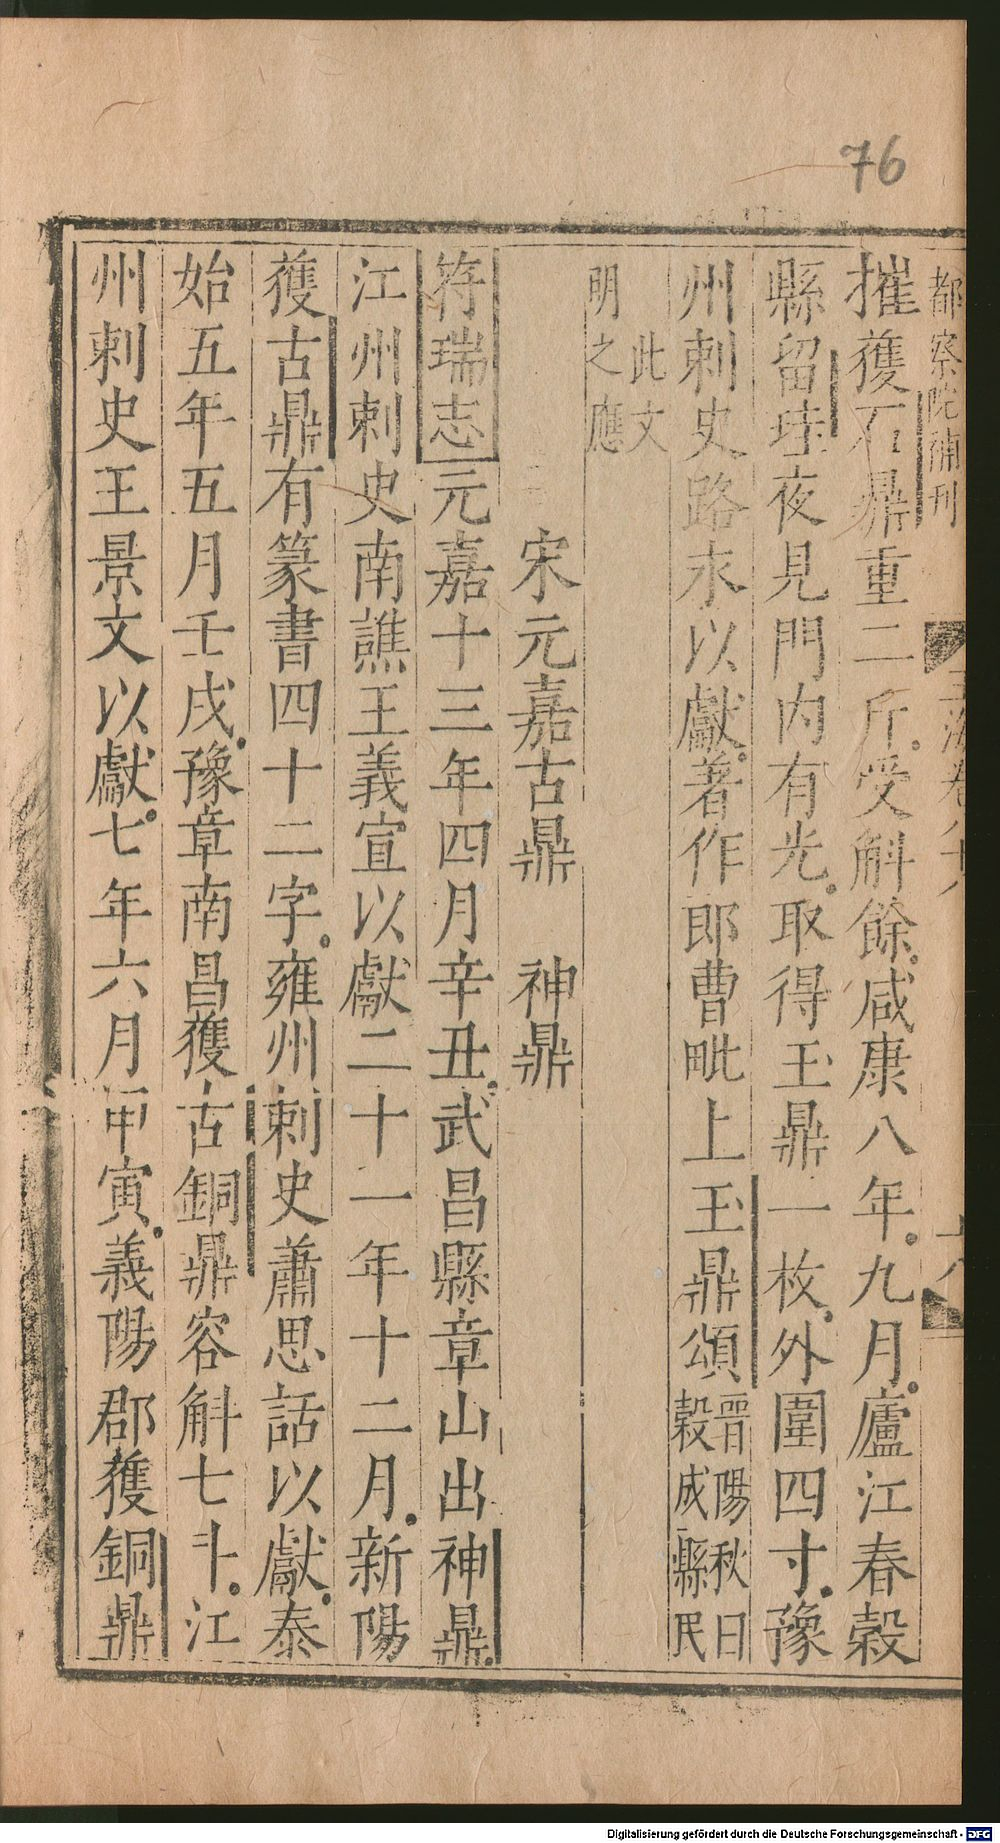 76
都察院補刊
玉海卷八十八
十八
摧獲石鼎重二斤受斛餘咸康八年九月廬江春榖
縣留珪夜見門內有光取得玉鼎一枚外圍四寸豫
州刺史路永以獻著作郎曹毗上玉鼎頌晉陽秋曰榖成縣民
此文明之應
宋元嘉古鼎 神鼎
符瑞志元嘉十三年四月辛丑武昌縣章山出神鼎
江州刺史南譙王義宣以獻二十一年十二月新陽
獲古鼎有篆書四十二字雍州刺史蕭思話以獻泰
始五年五月壬戌豫章南昌獲古銅鼎容斛七斗江
州刺史王景文以獻七年六月甲寅義陽郡獲銅鼎
Digitalisierung gefördert durch die Deutsche Forschungsgemeinschaft - DFG